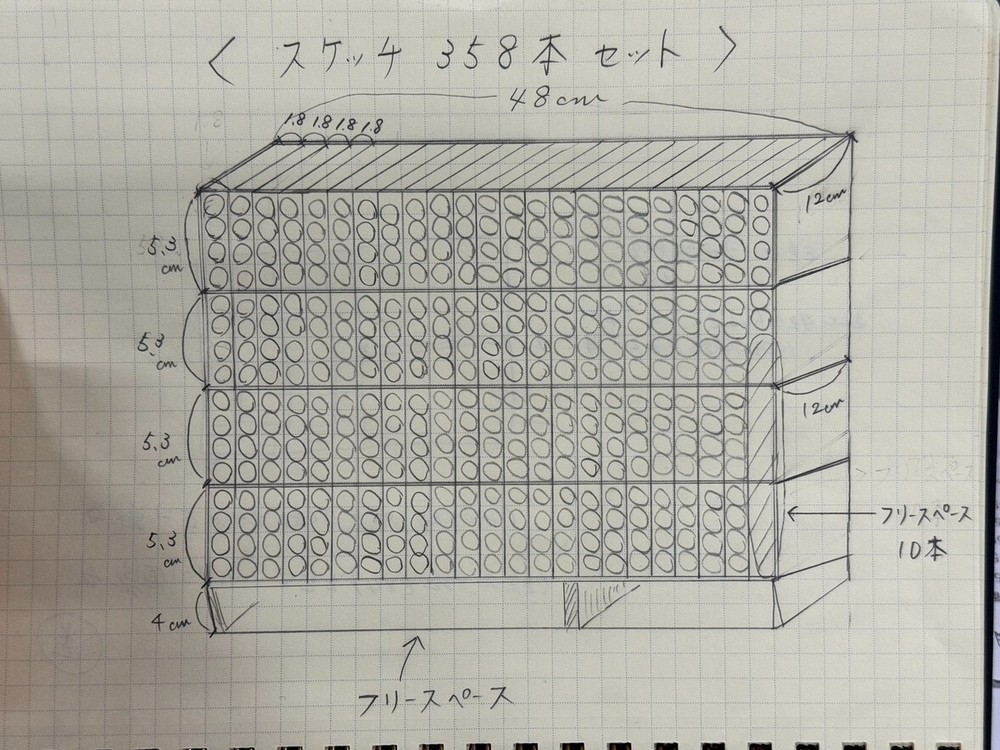 〈 スケッチ 358本 セット 〉
48cm
1.8 1.8 1.8 1.8
12cm
5.3
cm
5.3
cm
12cm
5.3
cm
5.3
cm
フリースペース
10本
4cm
フリースペース